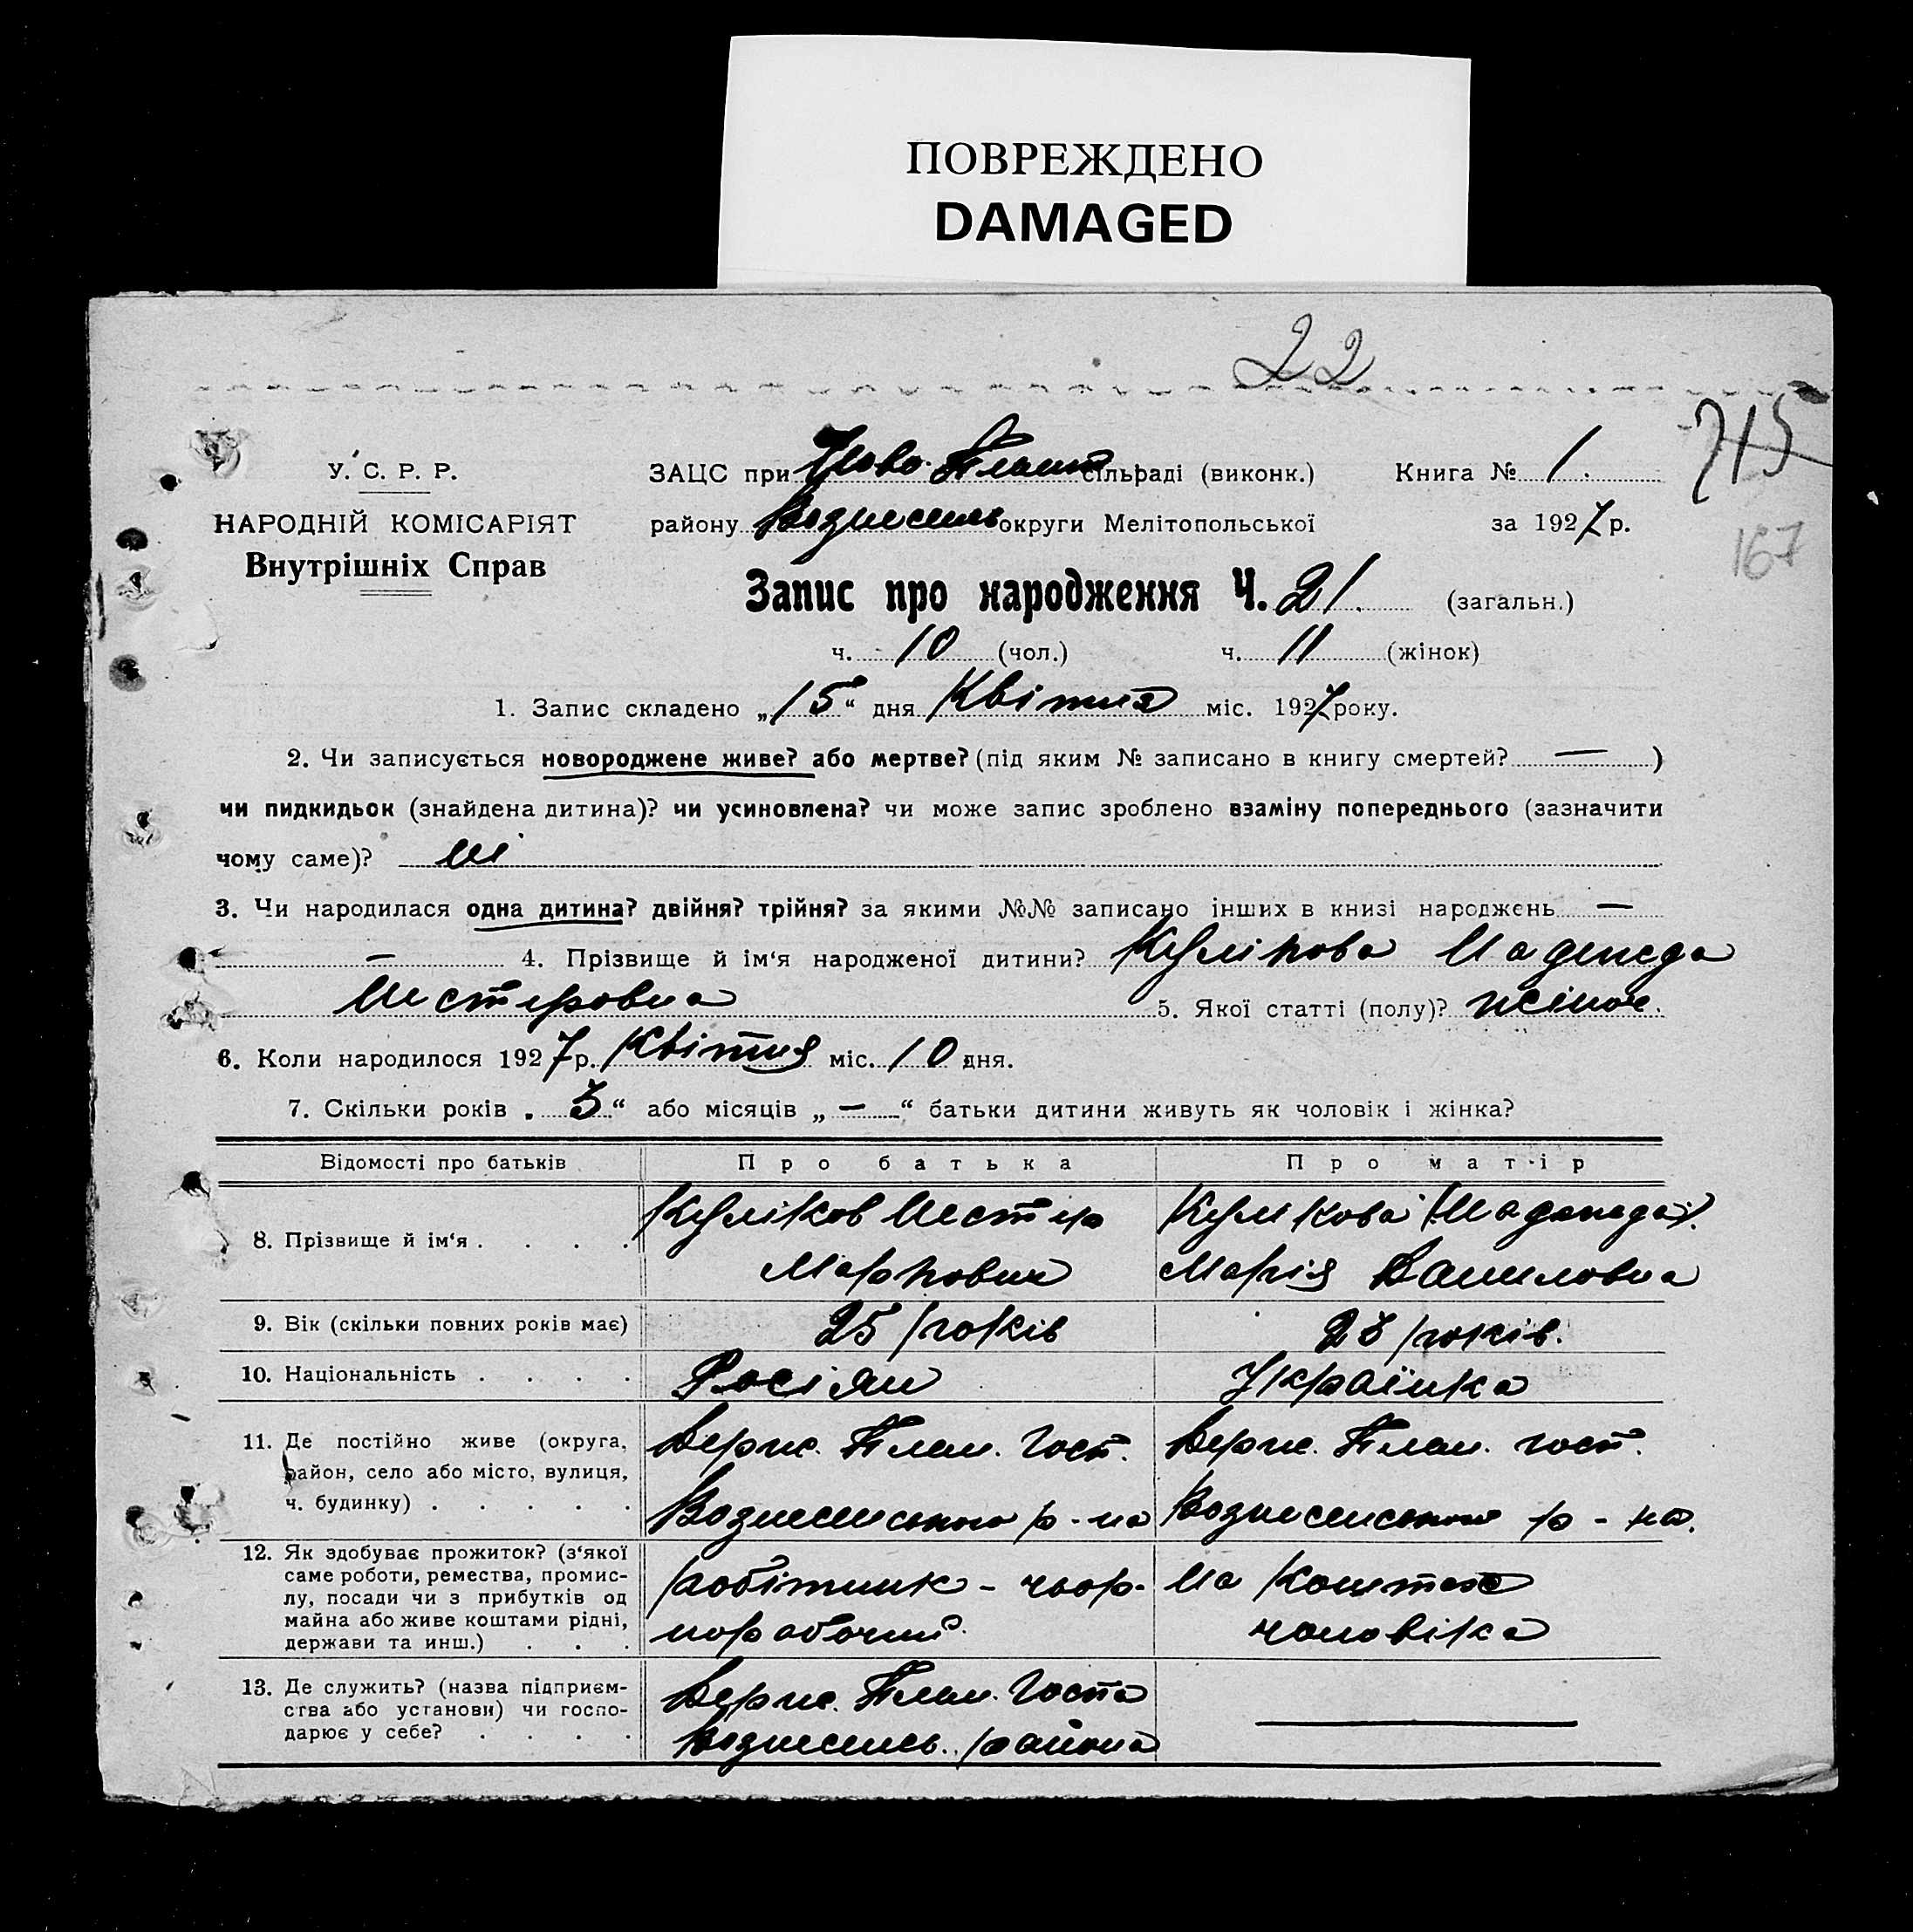 ПОВРЕЖДЕНО
DAMAGED
22
715
167
У. С. Р. Р.
НАРОДНІЙ КОМІСАРІЯТ
Внутрішніх Справ
ЗАЦС при Ново-Плат сільраді (виконк.) Книга № 1.
району Вознесенсь округи Мелітопольської за 1927 р.
Запис про народження Ч. 21. (загальн.)
ч. 10 (чол.) ч. 11 (жінок)
1. Запис складено „15“ дня Квітня міс. 1927 року.
2. Чи записується новороджене живе? або мертве? (під яким № записано в книгу смертей? — )
чи пидкидьок (знайдена дитина)? чи усиновлена? чи може запис зроблено взаміну попереднього (зазначити
чому саме)? ні
3. Чи народилася одна дитина? двійня? трійня? за якими №№ записано інших в книзі народжень —
— 4. Прізвище й ім‘я народженої дитини? Кулікова Надежда
Нестеровна 5. Якої статті (полу)? жіноч.
6. Коли народилося 1927 р. Квітня міс. 10 дня.
7. Скільки років „3“ або місяців „—“ батьки дитини живуть як чоловік і жінка?
Відомості про батьків Про батька Про матір
8. Прізвище й ім‘я . . . . Куліков Нестер Куликова (Надежда)
Марkович Марія Даниловна
9. Вік (скільки повних років має) 25 років 23 років.
10. Національність . . . . Росіян Українка
11. Де постійно живе (округа, Верхс. План. Гост. Верхс. План. гост.
район, село або місто, вулиця,
ч. будинку) . . . . . Вознесенського р-на Вознесенського р-на.
12. Як здобуває прожиток? (з‘якої
саме роботи, ремества, промис- робітник - чьор- На коштах
лу, посади чи з прибутків од
майна або живе коштами рідні, норабочий. чоловіка
держави та инш.) . . .
13. Де служить? (назва підприєм- Верхс. План. Госта
ства або установи) чи госпо-
дарює у себе? . . . . Вознесенсь. района